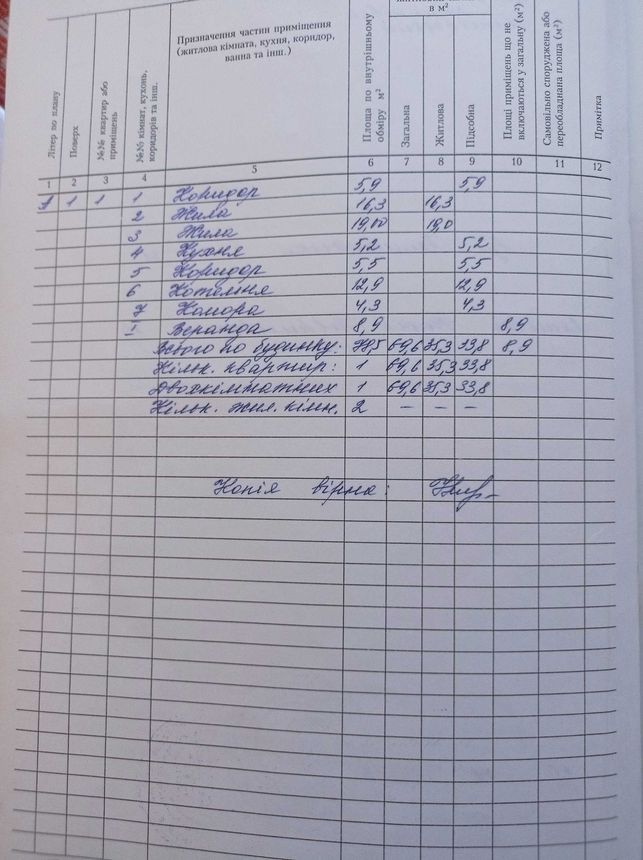 в м²
Літер по плану
Поверх
№№ квартир або приміщень
№№ кімнат, кухонь, коридорів та інш.
Призначення частин приміщення
(житлова кімната, кухня, коридор,
ванна та інш.)
Площа по внутрішньому обміру м²
Загальна
Житлова
Підсобна
Площі приміщень що не включаються у загальну (м²)
Самовільно споруджена або переобладнана площа (м²)
Примітка
1 2 3 4 5 6 7 8 9 10 11 12
1 1 1 Коридор 5,9 5,9
2 Жила 16,3 16,3
3 Жила 19,00 19,0
4 Кухня 5,2 5,2
5 Коридор 5,5 5,5
6 Котельня 12,9 12,9
7 Комора 4,3 4,3
I Веранда 8,9 8,9
Всього по будинку: 78,5 69,6 35,3 33,8 8,9
Кільк. квартир: 1 69,6 35,3 33,8
Двохкімнатних 1 69,6 35,3 33,8
Кільк. жил. кімн. 2 – – –
Копія вірна: